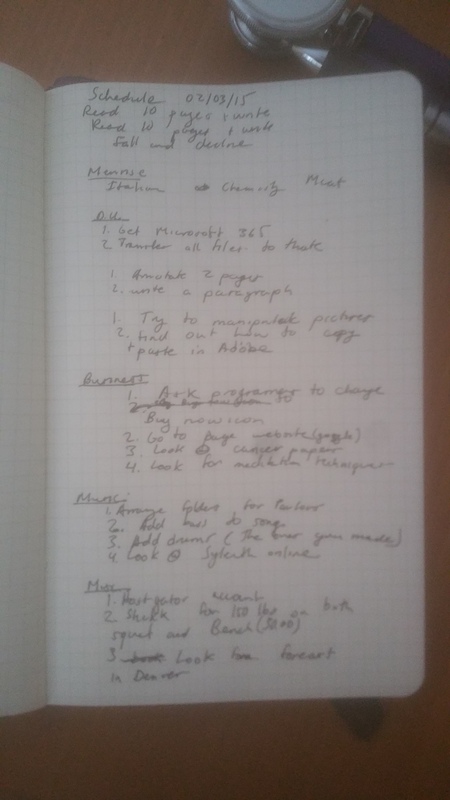 Schedule 02/03/15
Read 10 pages + write
Read 10 pages + write
Fall and decline
Italian Chemistry Meat
1. Get Microsoft 365
2. Transfer all files to that
1. Annotate 2 pages
2. write a paragraph
1. Try to manipulate pictures
2. find out how to copy
+ paste in Adobe
Business
1. Ask programmer to change
Buy now icon
2. Go to page website (google)
3. Look @ cancer papers
4. Look for meditation techniques
Music
1. Arrange folders for
2. Add bass to song
3. Add drums (the over you made)
4. Look @ Sylenth online
Misc
1. Host gator account
2. for 150 lbs on both
squat and Bench
3. Look for forecast
in Denver